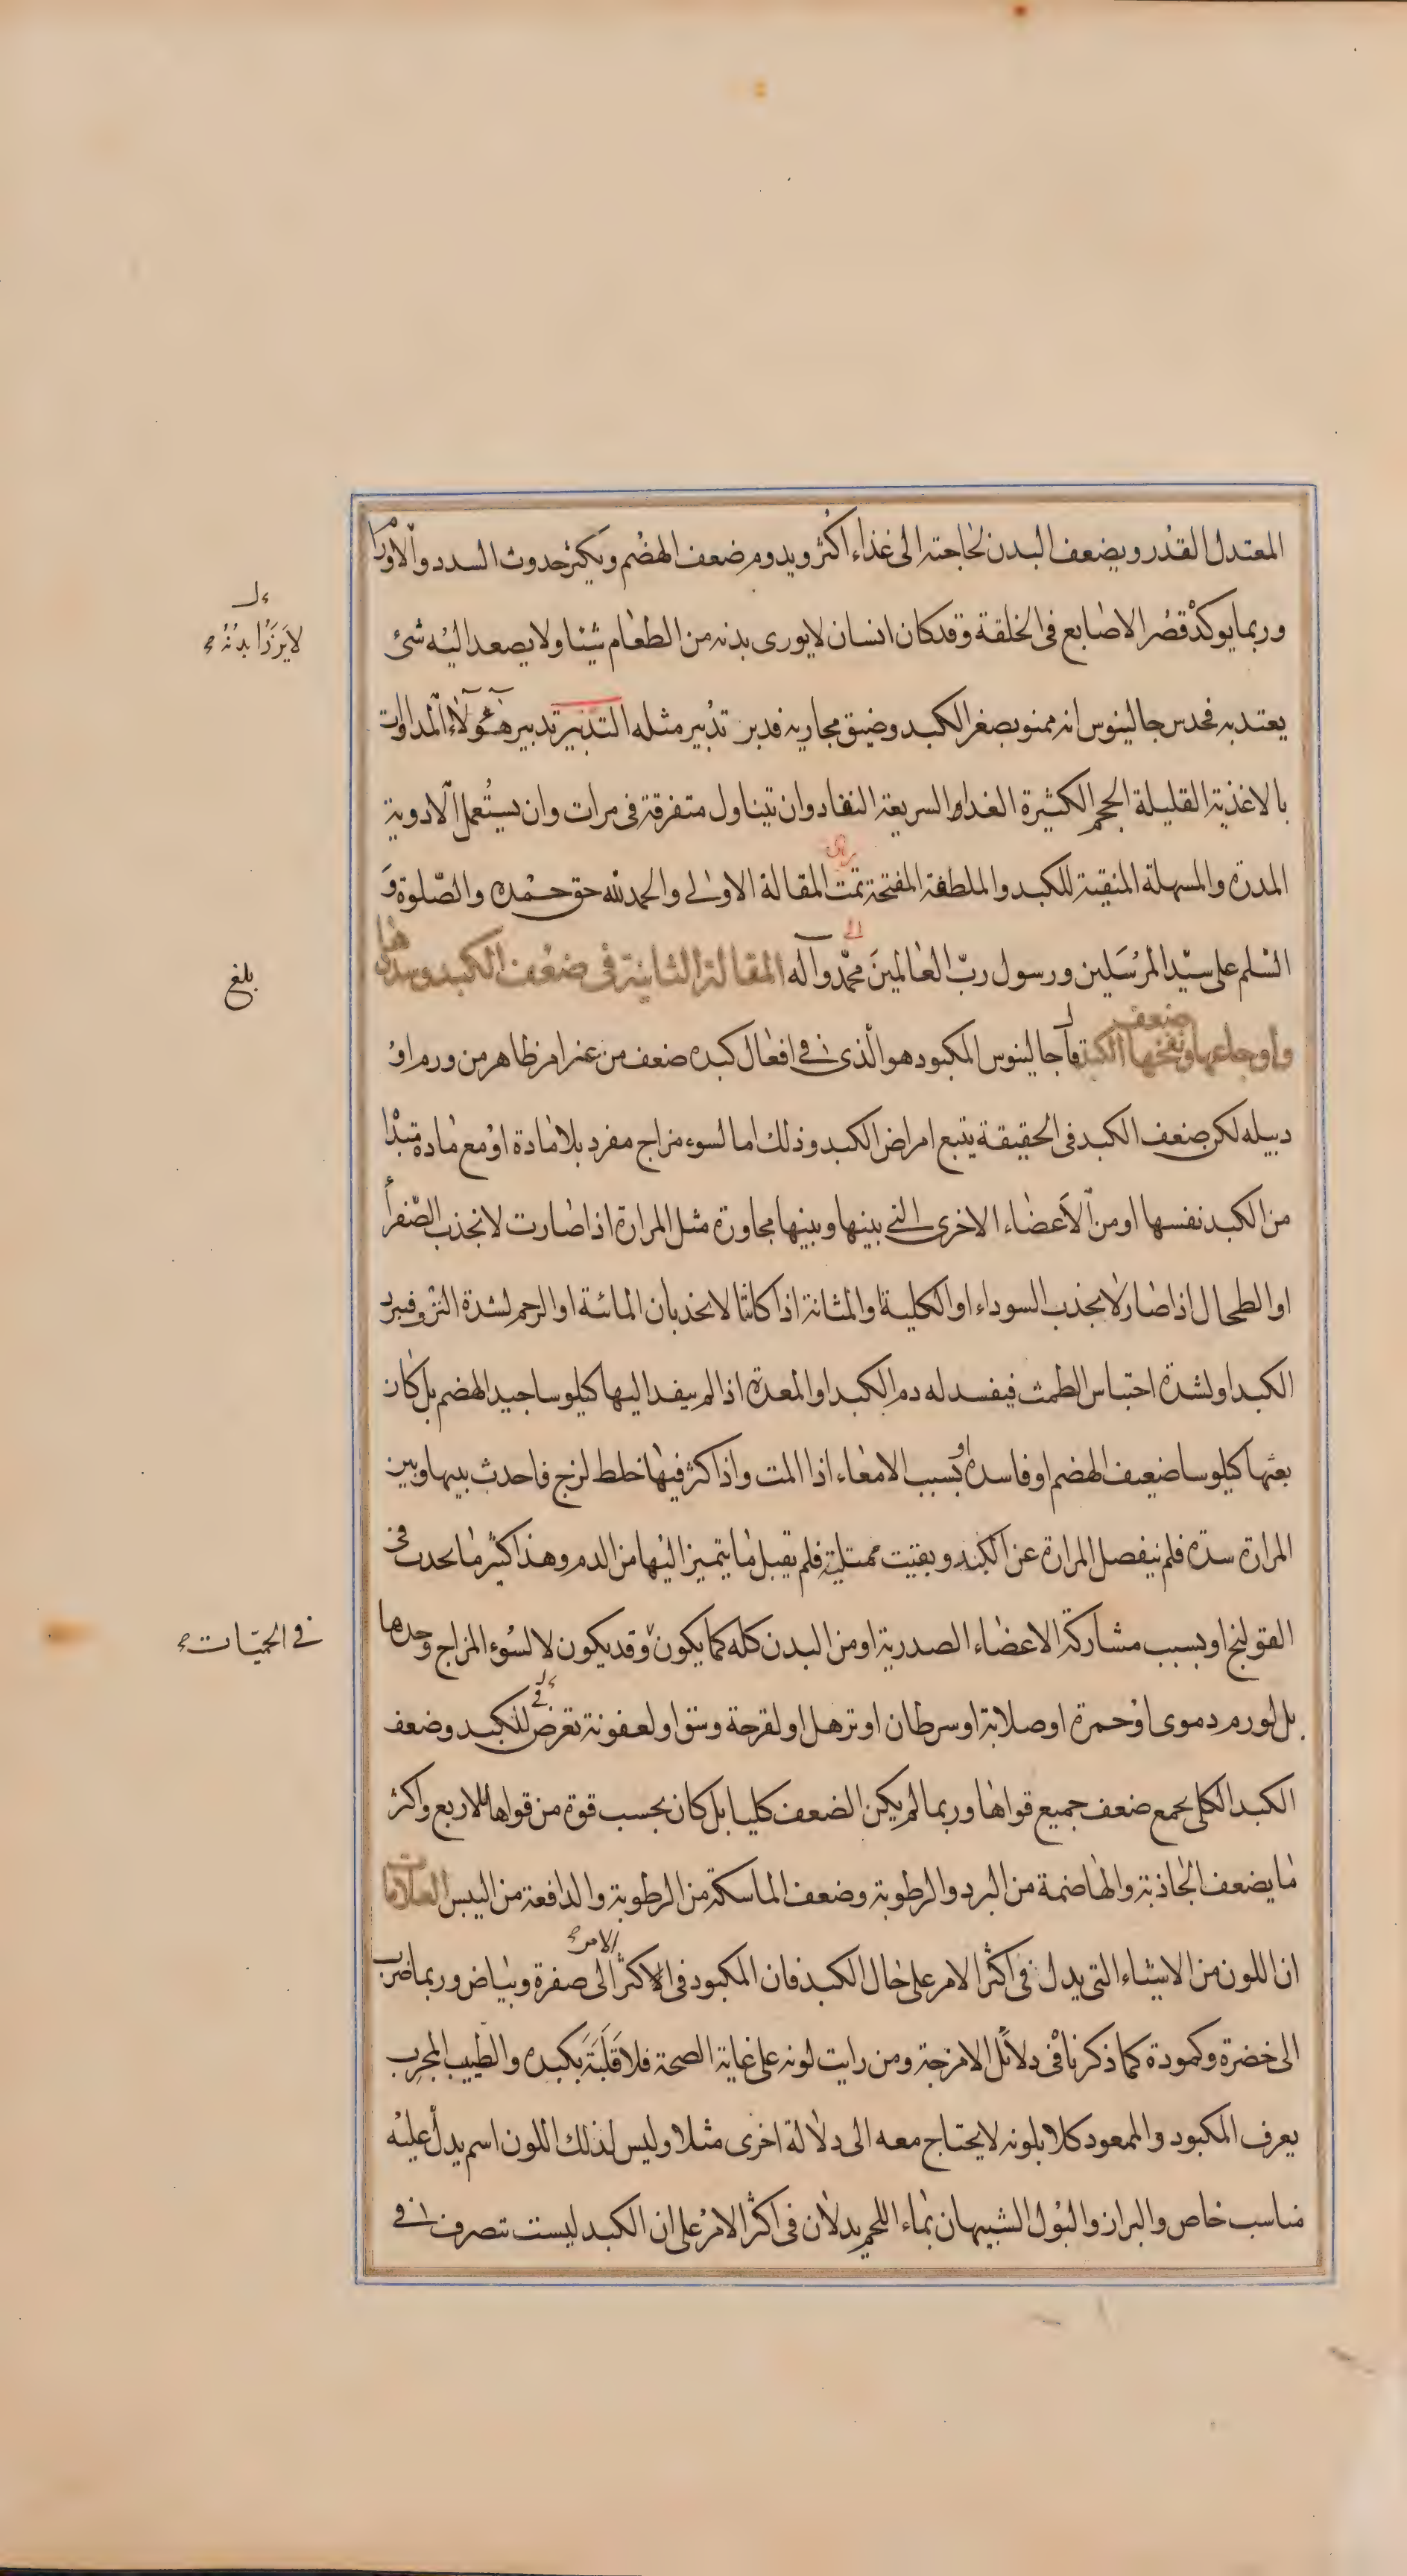 المعتدل القدر ويضعف البدن لحاجته الى غذاء اكثر ويدوم ضعف الهضم ويكثر حدوث السدد والاورام
وربما يوكد قصر الاصابع في الخلقة وقد كان انسان لا يورى بدنه من الطعام شيئا ولا يصعد اليه شئ
لا يرزأ بدنه
يعتد به فحدس جالينوس انه ممنو بصغر الكبد وضيق مجاريه فدبر تدبير مثله التدبير تدبير هؤلاء المداوات
بالاغذية القليلة الحجم الكثيرة الغذاء السريعة النفاد وان تتناول متفرقة في مرات وان يستعمل الادوية
المدرة والمسهلة المنقية للكبد والملطفة المفتحة تمت المقالة الاولى والحمد لله حق حمده والصلوة و
السلم على سيد المرسلين ورسول رب العالمين محمد وآله المقالة الثانية في ضعف الكبد وسددها
بلغ
واوجاعها ونفخها ضعف الكبد قال جالينوس المكبود هو الذي في افعال كبده ضعف من غير امر ظاهر من ورم او
دبيله لكن ضعف الكبد في الحقيقة يتبع امراض الكبد وذلك اما لسوء مزاج مفرد بلا مادة او مع مادة مبدا
من الكبد نفسها او من الاعضاء الاخرى التي بينها وبينها مجاورة مثل المرارة اذا صارت لا تجذب الصفرا
او الطحال اذا صار لا يجذب السوداء او الكلية والمثانة اذا كانتا لا تجذبان المائية او الرحم لشدة النزف فيبرد
الكبد او لشدة احتباس الطمث فيفسد له دم الكبد او المعدة اذا لم ينفد اليها كيلوسا جيد الهضم بل كان
بعثها كيلوسا ضعيف الهضم او فاسده او بسبب الامعاء اذا المت واذا كثر فيها خلط لزج فاحدث بينها وبين
المرارة سدة فلم ينفصل المرارة عن الكبد وبقيت ممتلية فلم يقبل ما يتميز اليها من الدم وهذا كثيرا ما يحدث في
القولنج او بسبب مشاركة الاعضاء الصدرية او من البدن كله كما يكون وقد يكون لا لسوء المزاج وحدها
في الحميات
بل لورم دموى او حمرة او صلابة او سرطان او ترهل او لقرحة وشق او لعفونة تعرض في للكبد وضعف
الكبد الكلى يجمع ضعف جميع قواها وربما لم يكن الضعف كليا بل كان بحسب قوة من قواها الاربع واكثر
ما يضعف الجاذبة والهاضمة من البرد والرطوبة وضعف الماسكة من الرطوبة والدافعة من اليبس العلامات
ان اللون من الاشياء التي يدل في اكثر الامر على حال الكبد فان المكبود في الاكثر الامر الى صفرة وبياض وربما ضرب
الى خضرة وكمودة كما ذكرنا في دلائل الامزجة ومن رايت لونه على غاية الصحة فلا قلبة بكبده والطبيب المجرب
يعرف المكبود والممعود كلا بلونه لا يحتاج معه الى دلالة اخرى مثلا وليس لذلك اللون اسم يدل عليه
مناسب خاص والبراز والبول الشبيهان بماء اللحم يدلان في اكثر الامر على ان الكبد ليست تتصرف في